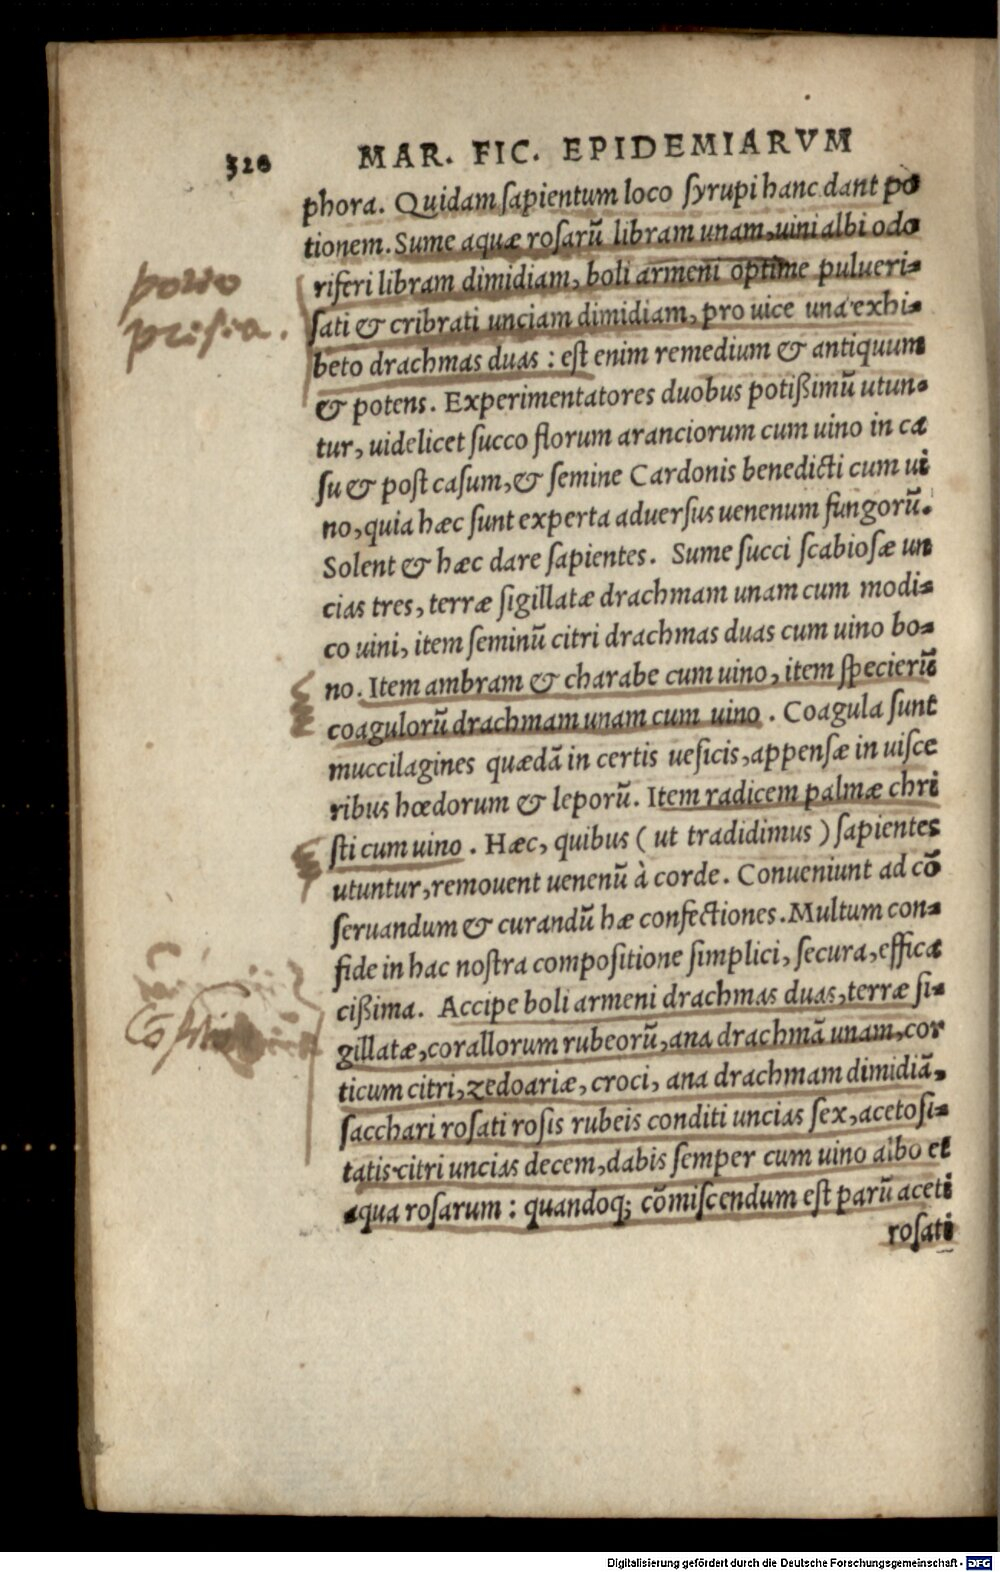 320 MAR. FIC. EPIDEMIARVM
phora. Quidam ſapientum loco ſyrupi hanc dant po
tionem. Sume aquæ roſarũ libram unam, uini albi odo
riferi libram dimidiam, boli armeni optime pulueri-
ſati & cribrati unciam dimidiam, pro uice una exhi-
beto drachmas duas : eſt enim remedium & antiquum
& potens. Experimentatores duobus potißimũ utun-
tur, uidelicet ſucco florum aranciorum cum uino in ca
ſu & poſt caſum, & ſemine Cardonis benedicti cum ui
no, quia hæc ſunt experta aduerſus uenenum fungorũ.
Solent & hæc dare ſapientes. Sume ſucci ſcabioſæ un
cias tres, terræ ſigillatæ drachmam unam cum modi-
co uini, item ſeminũ citri drachmas duas cum uino bo-
no. Item ambram & charabe cum uino, item ſpecierũ
coagulorũ drachmam unam cum uino . Coagula ſunt
muccilagines quædã in certis ueſicis, appenſæ in uiſce
ribus hœdorum & leporũ. Item radicem palmæ chri
ſti cum uino . Hæc, quibus ( ut tradidimus ) ſapientes
utuntur, remouent uenenũ à corde. Conueniunt ad cõ
ſeruandum & curandũ hæ confectiones. Multum con-
fide in hac noſtra compoſitione ſimplici, ſecura, effica
cißima. Accipe boli armeni drachmas duas, terræ ſi-
gillatæ, corallorum rubeorũ, ana drachmã unam, cor
ticum citri, zedoariæ, croci, ana drachmam dimidiã,
ſacchari roſati roſis rubeis conditi uncias ſex, acetoſi-
tatis citri uncias decem, dabis ſemper cum uino albo et
aqua roſarum : quandoq; cõmiſcendum eſt parũ aceti
roſati
Digitalisierung gefördert durch die Deutsche Forschungsgemeinschaft - DFG